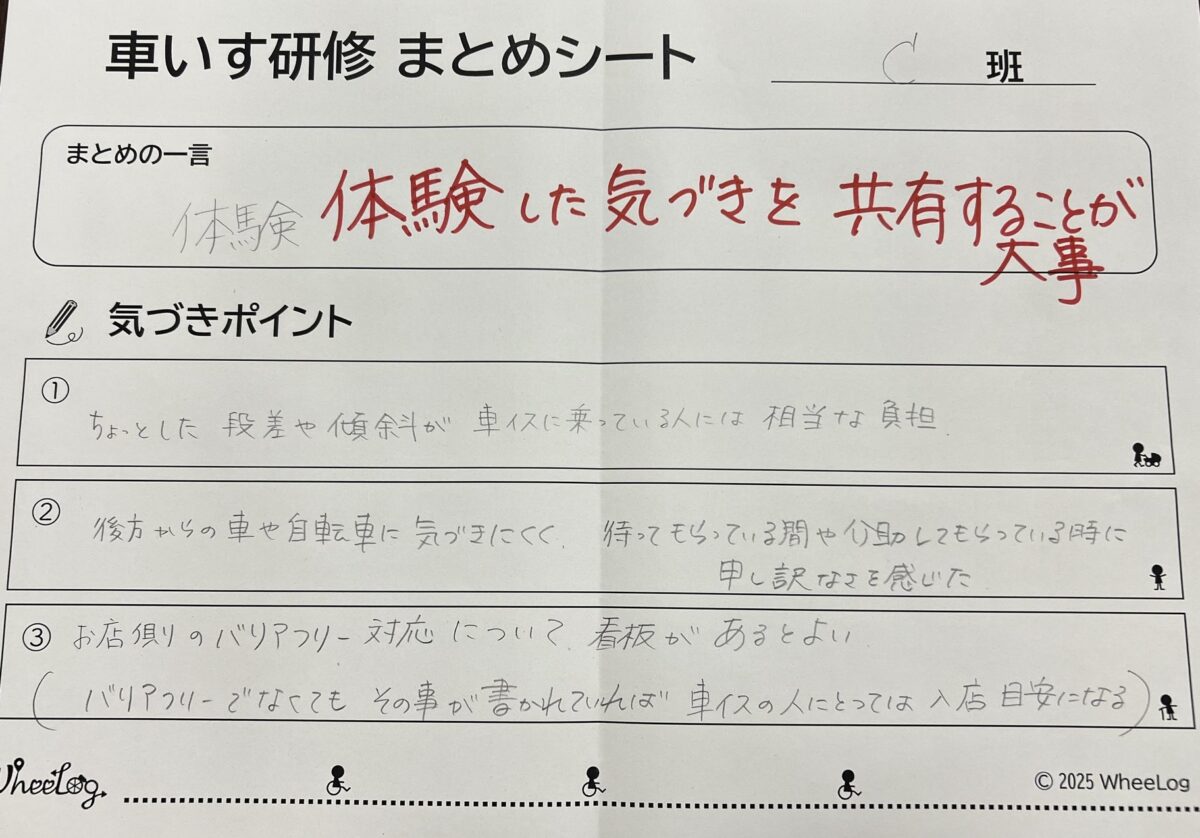 車いす研修 まとめシート
C 班
まとめの一言
体験 体験した気づきを共有することが
大事
気づきポイント
①
ちょっとした 段差や傾斜が 車イスに乗っている人には 相当な負担
②
後方からの車や自転車に気づきにくく、待ってもらっている間や介助してもらっている時に
申し訳なさを感じた
③ お店側のバリアフリー対応について、看板があるとよい
(バリアフリーでなくても その事が書かれていれば 車イスの人にとっては入店目安になる)
WheeLog.
© 2025 WheeLog